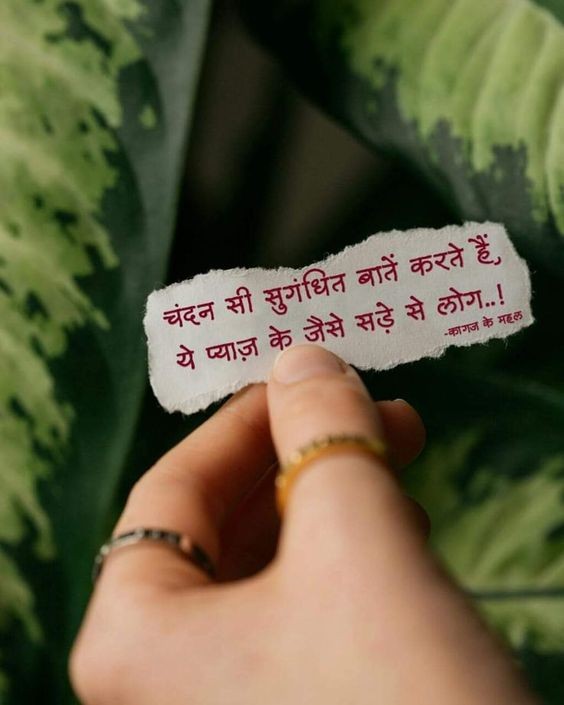 चंदन सी सुगंधित बातें करते हैं,
ये प्याज़ के जैसे सड़े से लोग..!
-कागज के महल